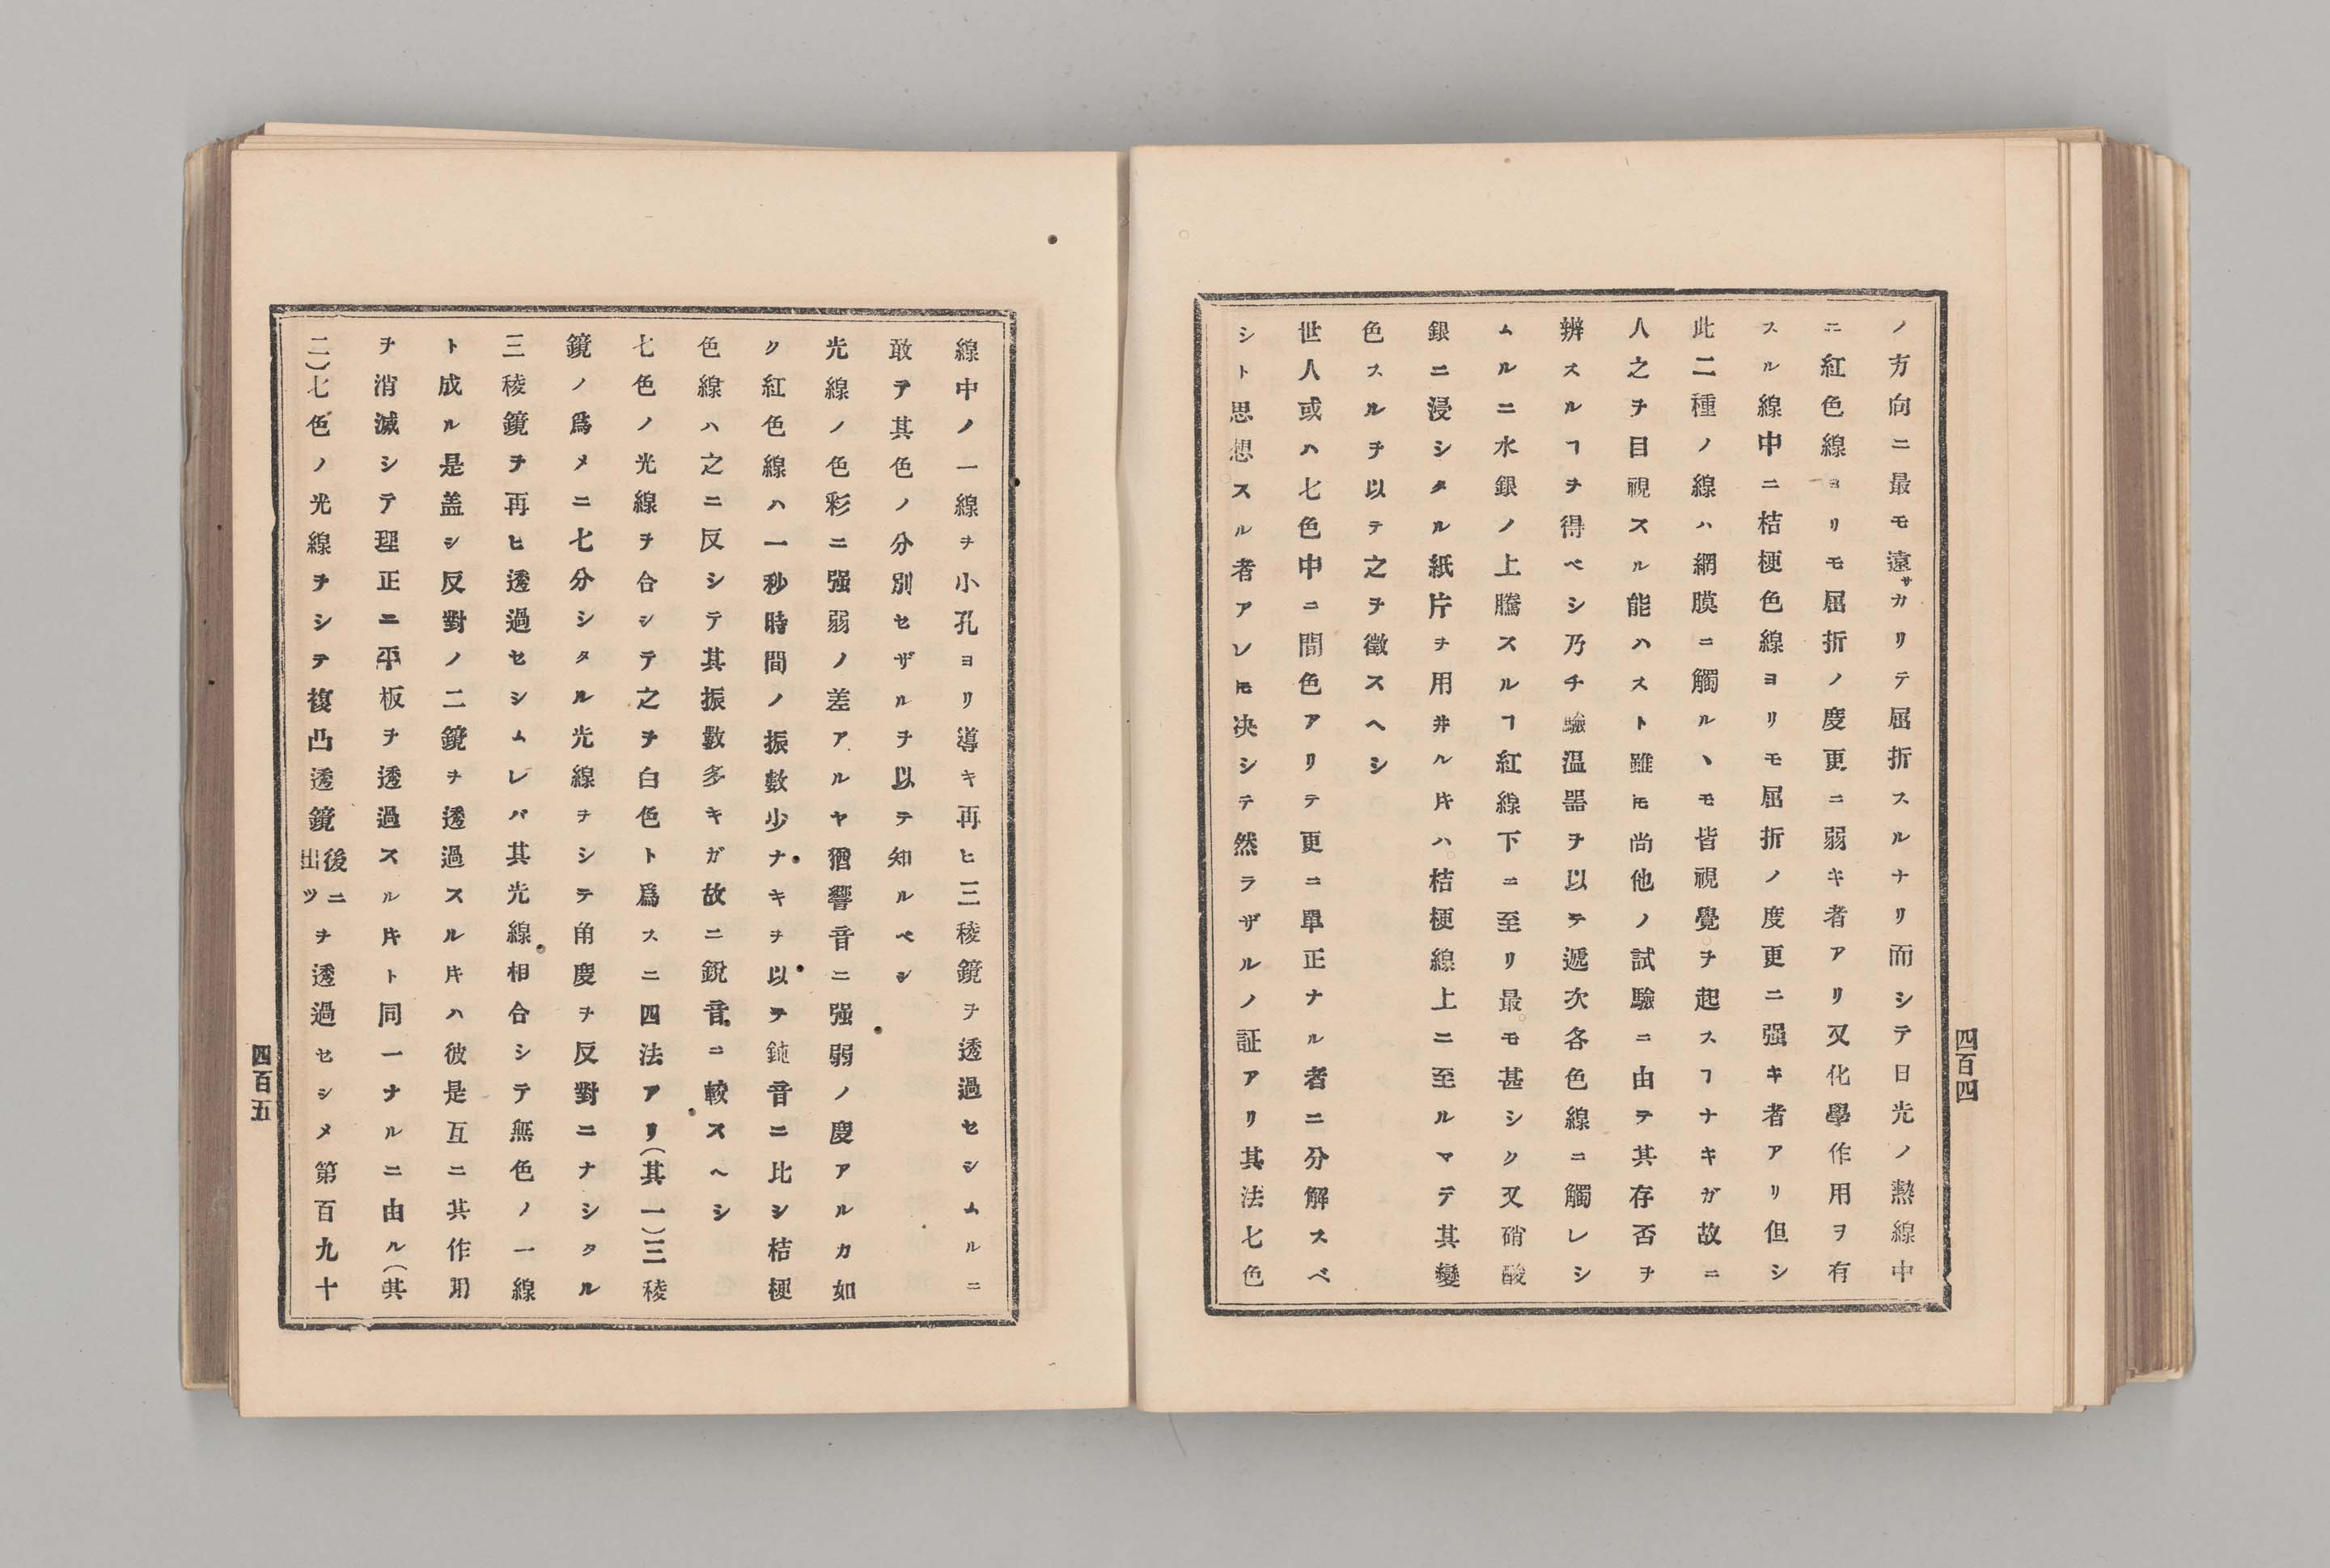 ノ方向ニ最モ遠サカリテ屈折スルナリ而シテ日光ノ熱線中
ニ紅色線ヨリモ屈折ノ度更ニ弱キ者アリ又化學作用ヲ有
スル線中ニ桔梗色線ヨリモ屈折ノ度更ニ强キ者アリ但シ
此二種ノ線ハ網膜ニ觸ルヽモ皆視覺ヲ起スヿナキガ故ニ
人之ヲ目視スル能ハスト雖𪜈尚他ノ試驗ニ由テ其存否ヲ
辨スルヿヲ得ベシ乃チ驗温器ヲ以テ遞次各色線ニ觸レシ
ムルニ水銀ノ上騰スルヿ紅線下ニ至リ最モ甚シク又硝酸
銀ニ浸シタル紙片ヲ用井ル𬼀ハ桔梗線上ニ至ルマデ其變
色スルヲ以テ之ヲ徵スヘシ
世人或ハ七色中ニ間色アリテ更ニ單正ナル者ニ分解スベ
シト思想スル者アレ𪜈决シテ然ラザルノ証アリ其法七色
四百四
線中ノ一線ヲ小孔ヨリ導キ再ヒ三稜鏡ヲ透過セシムルニ
敢テ其色ノ分別セザルヲ以テ知ルベシ
光線ノ色彩ニ强弱ノ差アルヤ猶響音ニ强弱ノ度アルカ如
ク紅色線ハ一秒時間ノ振數少ナキヲ以テ鈍音ニ比シ桔梗
色線ハ之ニ反シテ其振數多キガ故ニ銳音ニ較スヘシ
七色ノ光線ヲ合シテ之ヲ白色ト爲スニ四法アリ(其一)三稜
鏡ノ爲メニ七分シタル光線ヲシテ角度ヲ反對ニナシタル
三稜鏡ヲ再ヒ透過セシムレバ其光線相合シテ無色ノ一線
ト成ル是盖シ反對ノ二鏡ヲ透過スル𬼀ハ彼是互ニ其作用
ヲ消滅シテ理正ニ平板ヲ透過スル𬼀ト同一ナルニ由ル(其
二)七色ノ光線ヲシテ複凸透鏡後ニ出ツヲ透過セシメ第百九十
四百五